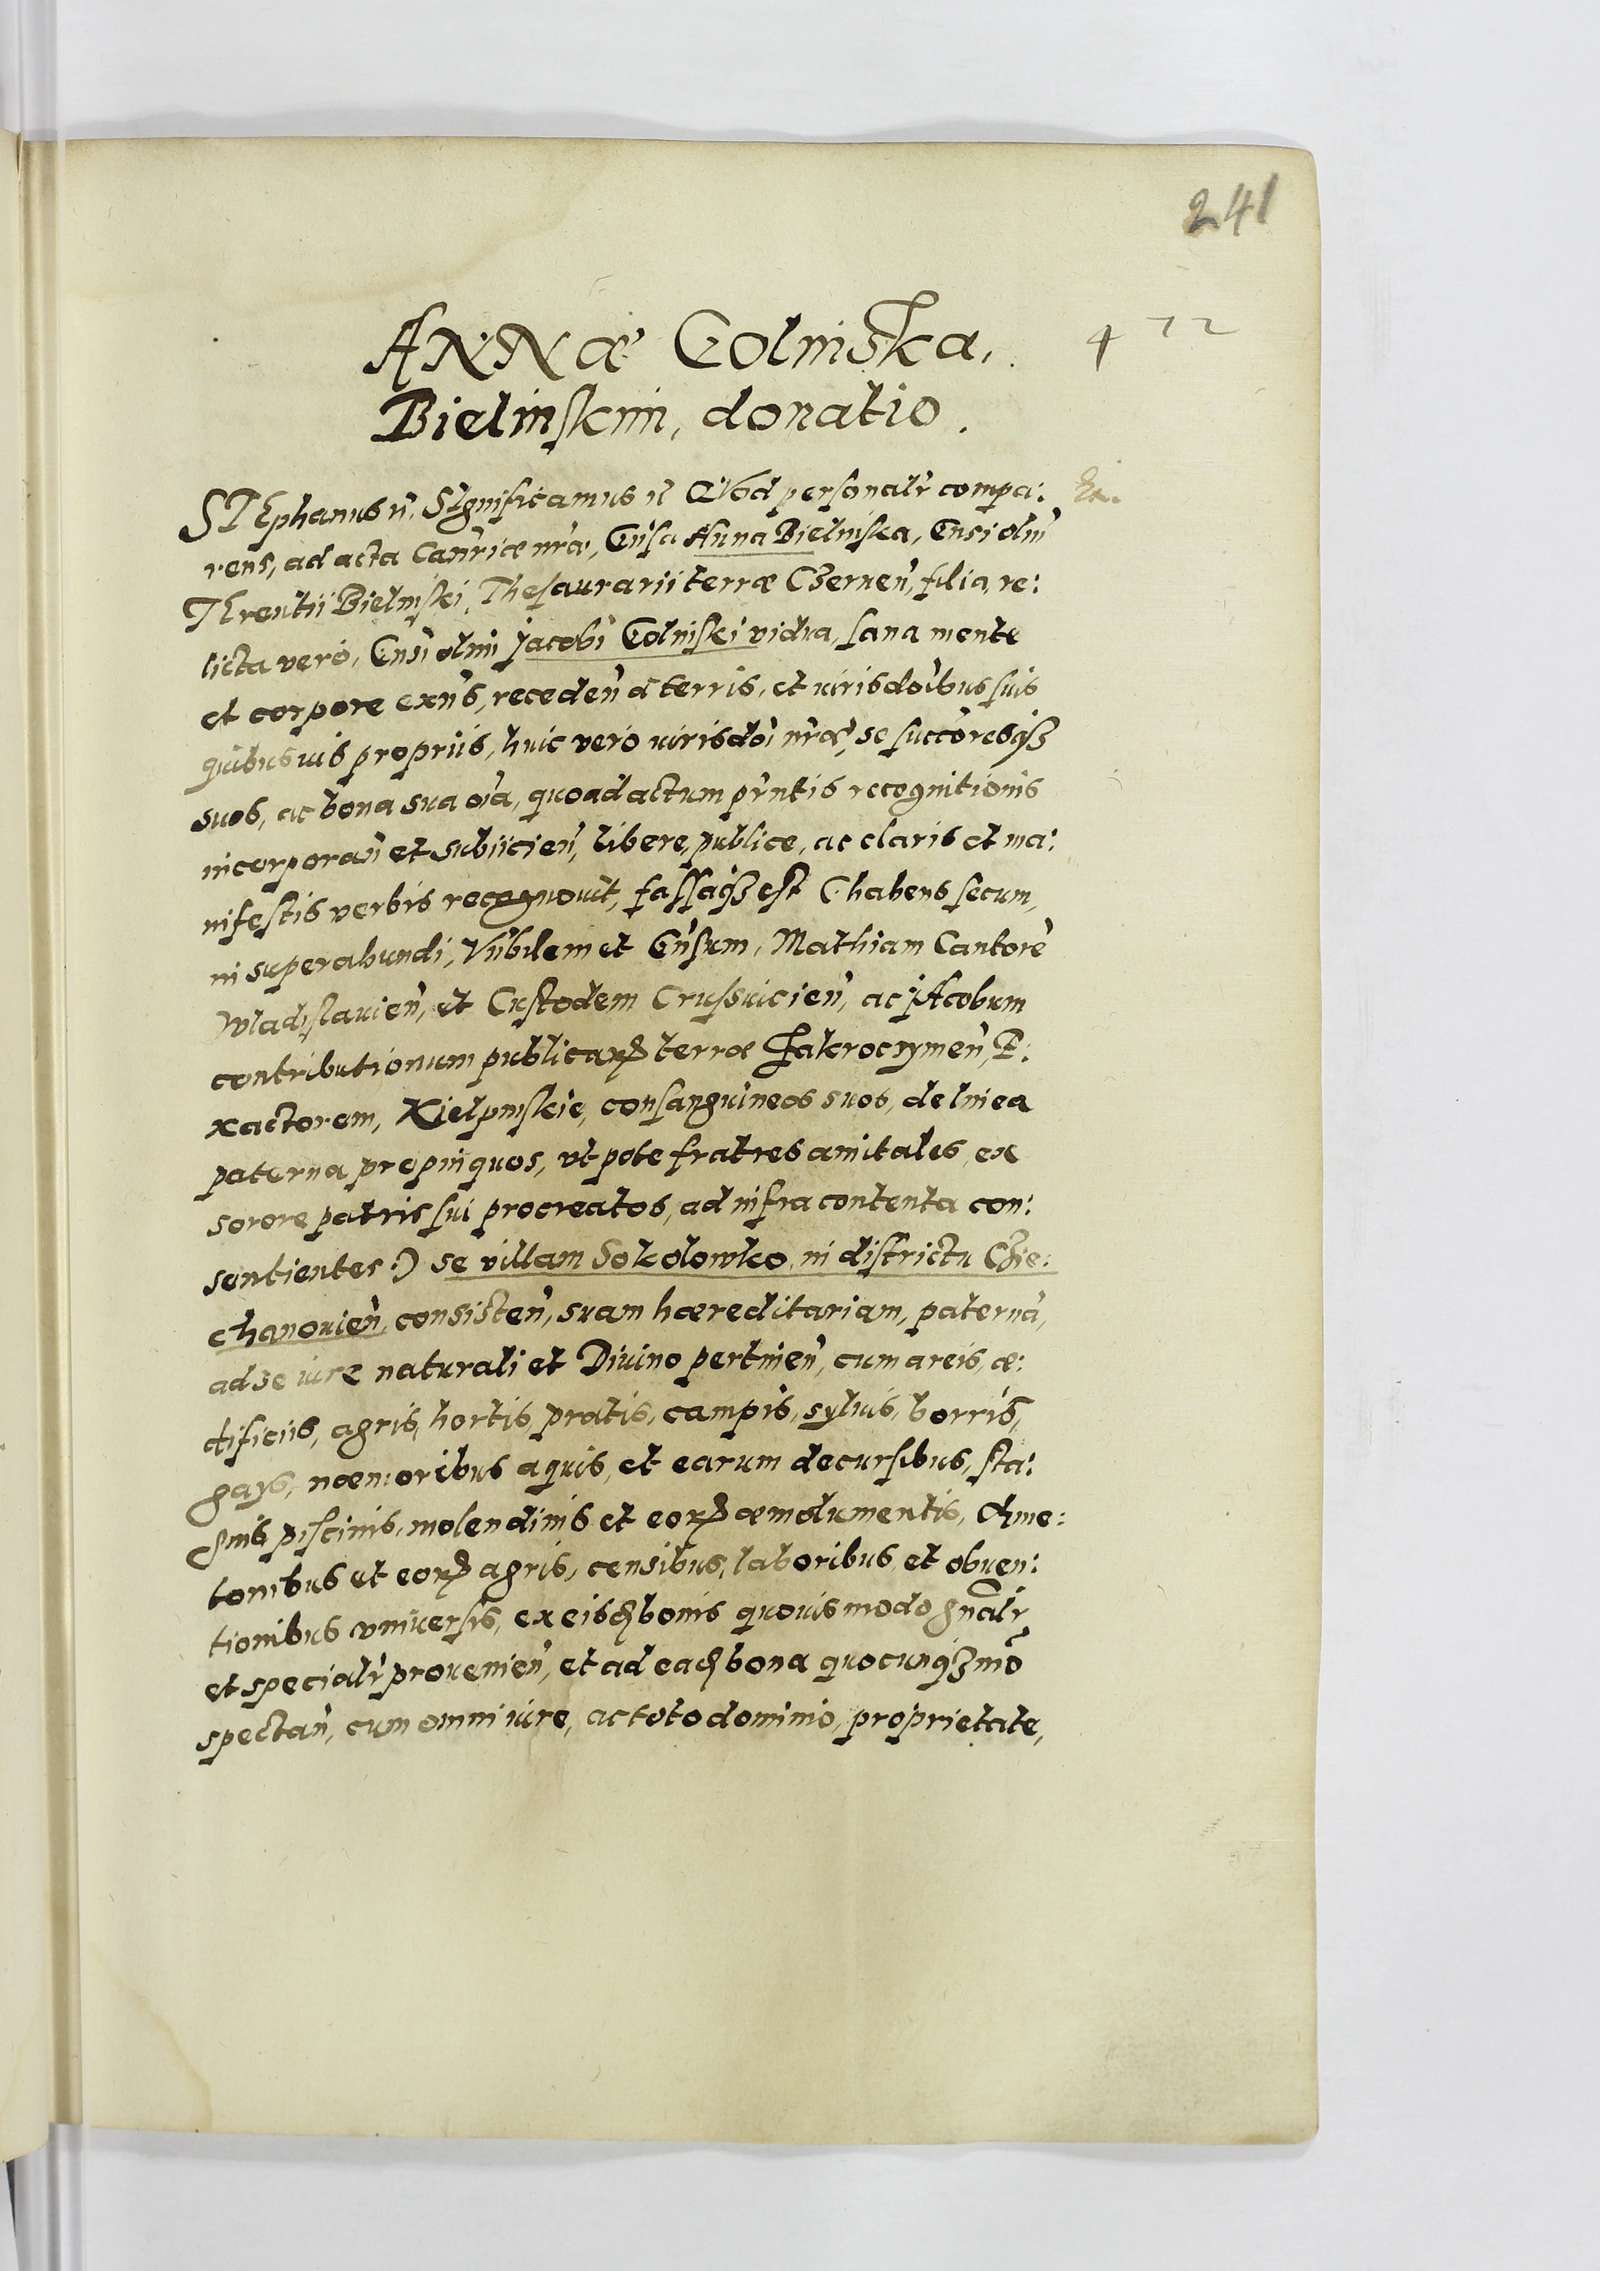 241
472
ANNæ Golinska,
Bielinskim, donatio.
STEphanus etc. SIgnificamus etc. QVod personalr compa:
rens, ad acta Cancriæ nræ, Gnsa Anna Bielinska, Gnsi olim
TErentii Bielinski, Thesaurarii terræ Czernen, filia, re:
licta vero, Gnsi olim Jacobi Golinski vidua, sana mente
et corpore exns, receden a terris, et iurisdoibus suis
quibusuis propriis, huic vero iurisdoi nræ, se succoresqз
suos, ac bona sua oia, quoad actum prntis recognitionis
incorporan et subiicien, libere, publice, ac claris et ma:
nifestis verbis recognouit, fassaqз est (: habens secum,
in superabundi, Vnbilem et Gnsum, Mathiam Cantore
Wladislauien, et Custodem Crussuicien, ac JAcobum
contributionum publicarꝝ terræ Zakroczymen, E:
xactorem, Kielpinskie, consanguineos suos, de linea
paterna propinquos, vtpote fratres amitales, ex
sorore patris sui procreatos, ad infra contenta con:
sentientes:) se villam Sokolowko in districtu Cie:
chanouien, consisten, suam hæreditariam, paterna,
ad se iure naturali et Diuino pertinen, cum areis, æ:
dificiis, agris, hortis, pratis, campis, syluis, borris,
gays, næmoribus aquis, et earum decursibus, sta:
gnis piscinis, molendinis et eorꝝ æmolumentis, Cme:
tonibus et eorꝝ agris, censibus, laboribus et obuen:
tionibus vniuersis, ex eisdꝫ bonis quouis modo gnalr
et specialr prouenien, et ad eadꝫ bona quocunqз mo
spectan, cum omni iure, ac toto dominio, proprietate,